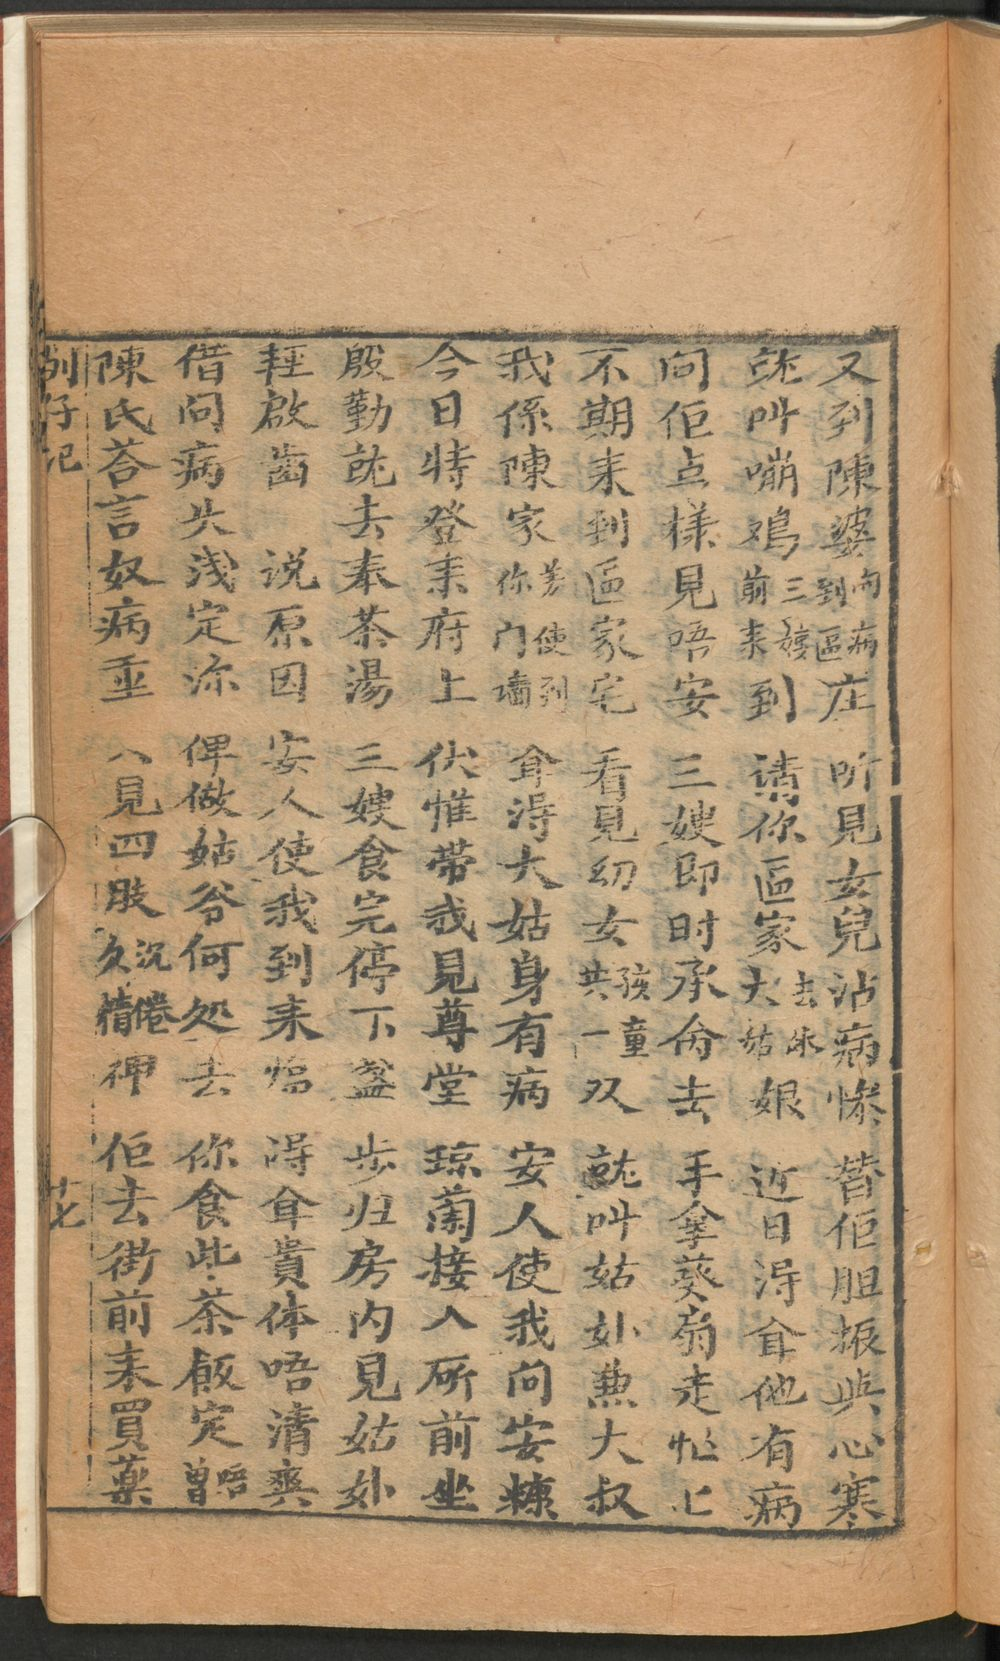 又到陳婆問病到區庄 听見女兒沾病惨 替佢胆振与心寒
就叫嘣鳮三嫂前来到 請你區家去保大姑娘 近日淂耷他有病
问佢点様見唔安 三嫂即时承命去 手拿葵扇走忙忙
不期来到區家宅 看見幼女孩童共一双 就叫姑奶兼大叔
我係陳家差使到你门墙 耷淂大姑身有病 安人使我问安糠
今日特登来府上 伏惟带我見尊堂 琼蘭接入所前坐
殷勤就去奉茶湯 三嫂食完停下盏 步归房内見姑奶
輕啟齒 说原因 安人使我到来临 淂耷貴体唔清爽
借问病头浅定深 俾做姑爷何処去 你食此茶飯定唔曾
陳氏荅言奴病重 八見四肢沉倦久精神 佢去街前来買藥
别仔记 廿七